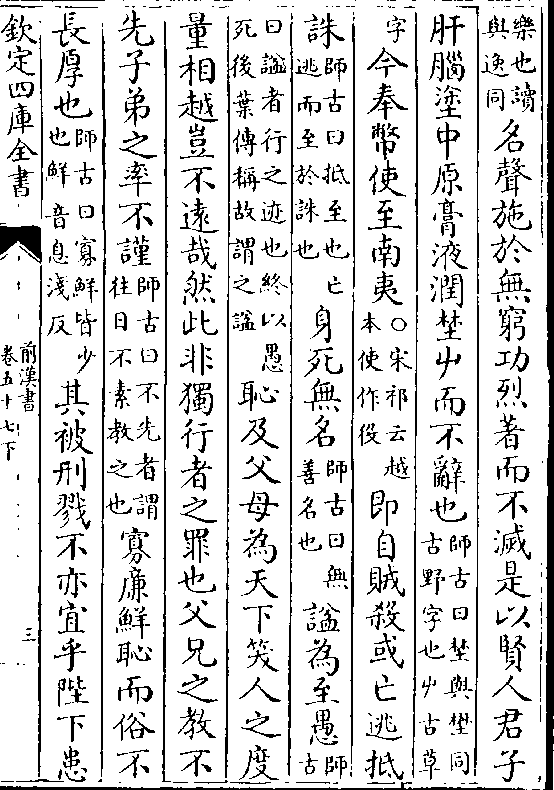 樂也讀與逸同名聲施於無窮功烈著而不滅是以賢人君子
肝腦塗中原膏液潤埜屮而不辭也師古曰埜與埜同古野字也屮古草
字今奉幣使至南夷〇宋祁云越本使作役即自賊殺或亡逃抵
誅師古曰抵至也亡逃而至於誅也身死無名師古曰無善名也諡為至愚師古
曰諡者行之迹也終以愚死後葉傳稱故謂之諡恥及父母為天下笑人之度
量相越豈不遠哉然此非獨行者之罪也父兄之教不
先子弟之率不謹師古曰不先者謂往日不素教之也寡廉鮮恥而俗不
長厚也師古曰寡鮮皆少也鮮音息淺反其被刑戮不亦宜乎陛下患
欽定四庫全書
前漢書
卷五十七下
三